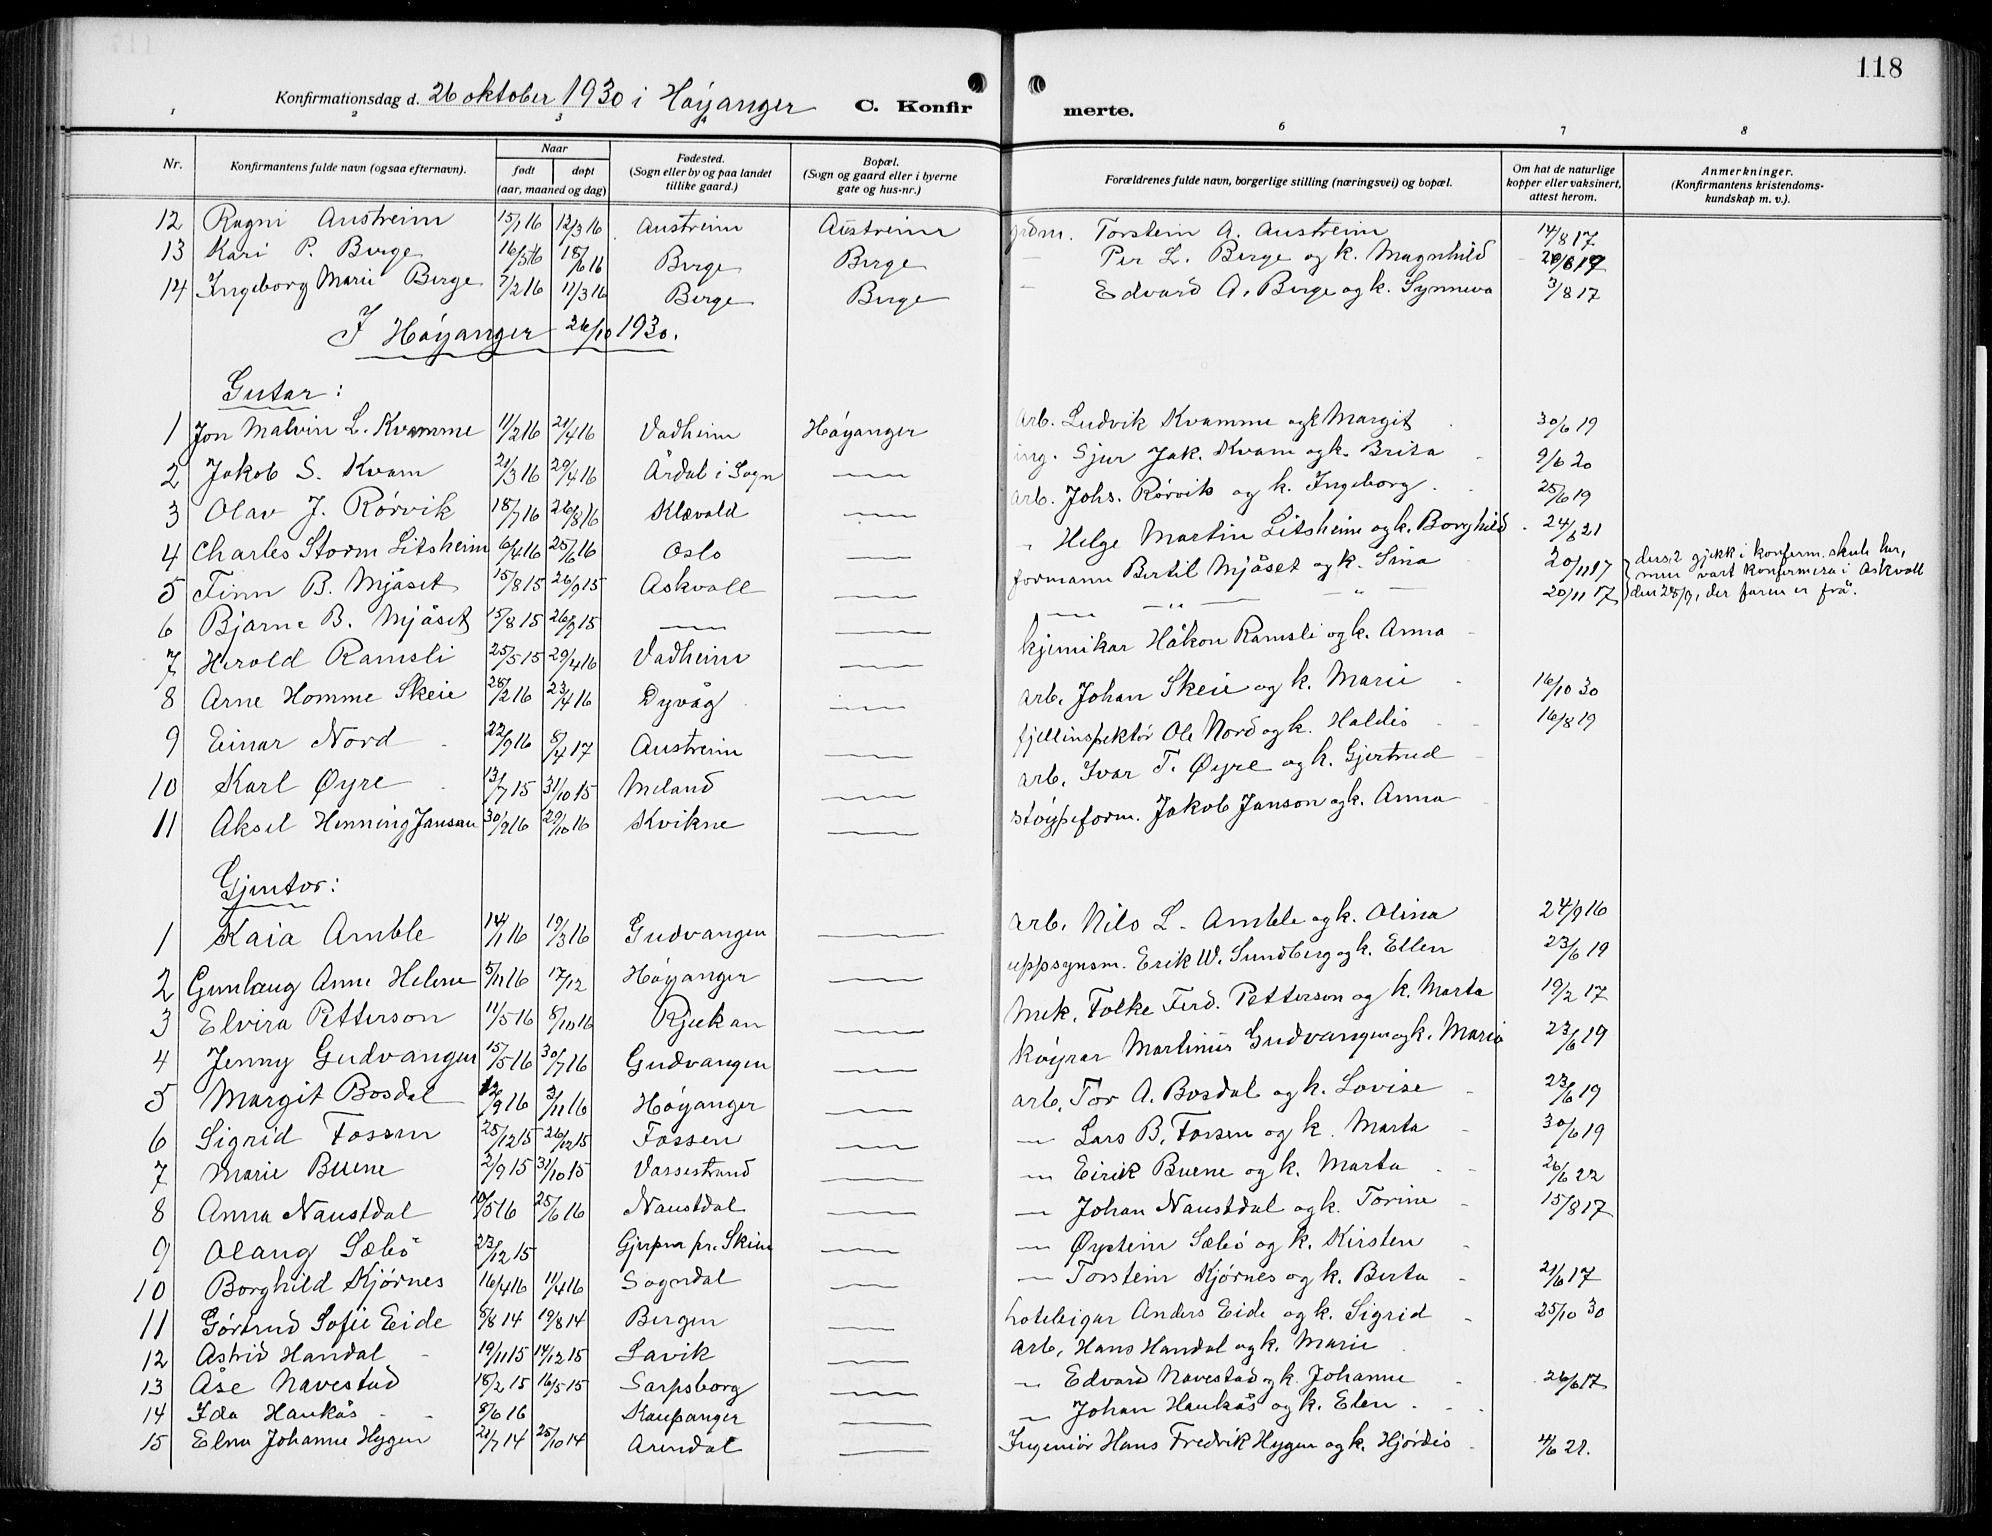 118
Konfirmationsdag d. 26 oktober 1930 i Høyanger C. Konfirmerte.
1 2 3 4 6 7 8
Nr. Konfirmantens fulde navn (ogsaa efternavn). Naar født døpt (aar, maaned og dag) Fødested. (Sogn eller by og paa landet tillike gaard.) Bopæl. (Sogn og gaard eller i byerne gate og hus-nr.) Forældrenes fulde navn, borgerlige stilling (næringsvei) og bopæl. Om hat de naturlige kopper eller vaksinert, attest herom. Anmerkninger. (Konfirmantens kristendomskundskap m. v.).
12 Ragni Austreim 15/1 16 12/3 16 Austreim Austreim grdm. Torstein A. Austreim 14/8 17
13 Kari P. Berge 16/5 16 18/6 16 Berge Berge — Per L. Berge og k. Magnhild
14 Ingeborg Marie Berge 7/2 16 11/3 16 Berge Berge — Edvard A. Berge og k. Synneva 3/8 17
I Høyanger 26/10 1930.
Gutar:
1 Jon Malvin L. Kvamme 11/2 16 21/4 16 Vadheim Høyanger arb. Ludvik Kvamme og k Margit 30/6 19
2 Jakob S. Kvam 21/3 16 29/4 16 Årdal i Sogn — ing. Sjur Jak. Kvam og k. Brita 9/6 20
3 Olav J. Rørvik 18/7 16 26/8 16 Klævold — arb. Johs. Rørvik og k. Ingeborg. 25/6 19
4 Charles Storm Litsheim 6/4 16 25/6 16 Oslo — " Helge Martin Litsheim og k. Borghild. 24/6 21
5 Finn B. Mjåset 15/8 15 26/9 15 Askvoll — formann Bertil Mjåset og k. Sina 20/11 17 desse 2 gjekk i konferm. skule her, men vart konfirmera i Askvoll
6 Bjarne B. Mjåset 15/8 15 26/9 15 — — — " — " — 20/11 17 den 28/9, der faren er frå.
7 Herold Ramsli 25/5 15 29/4 16 Vadheim — kjemikar Håkon Ramsli og k. Anna
8 Arne Homme Skeie 28/2 16 23/4 16 Dyvåg — arb. Johan Skeie og k. Marie 16/10 30
9 Einar Nord 22/9 16 8/4 17 Austreim — fjellinspektør Ole Nord og k. Haldis 16/8 19
10 Karl Øyre 13/7 15 31/10 15 Meland — arb. Ivar T. Øyre og k. Gjertrud
11 Aksel Henning Janson 30/9 16 29/10 16 Kvikne — støypeform. Jakob Janson og k. Anna
Gjentor:
1 Kaia Amble 14/1 16 19/3 16 Gudvangen — arb. Nils L. Amble og k. Olina 24/9 16
2 Gunlaug Anne Helene 5/11 16 17/12 Høyanger — uppsynsm. Erik W. Sundberg og k. Ellen 23/6 19
3 Elvira Petterson 11/5 16 8/10 16 Rjukan — Mek. Folke Ferd. Petterson og k. Marta 19/2 17
4 Jenny Gudvangen 15/5 16 30/7 16 Gudvangen — køyrar Martinus Gudvangen og k. Maria 23/6 19
5 Margit Bosdal 12/9 16 3/11 16 Høyanger — arb. Tor A. Bosdal og k. Lovise 23/6 19
6 Sigrid Fossen 25/12 15 26/12 15 Fossen — — Lars B. Fossen og k. Marta 30/6 19
7 Marie Buene 2/9 15 31/10 15 Vassestrand — — Eirik Buene og k. Marta 26/6 22
8 Anna Naustdal 10/5 16 25/6 16 Naustdal — — Johan Naustdal og k. Torine 15/8 17
9 Olaug Sæbø 23/12 15 Gjerpen pr. Skien — — Øystein Sæbø og k. Kirsten
10 Borghild Kjørnes 16/4 16 11/4 16 Sogndal — — Torstein Kjørnes og k. Berta 21/6 17
11 Gørtrud Sofie Eide 8/8 14 19/8 14 Bergen — hoteleigar Anders Eide og k. Sigrid 25/10 30
12 Astrid Handal 19/11 15 14/12 15 Lavik — arb. Hans Handal og k. Marie
13 Åse Navestad 18/2 15 16/5 15 Sarpsborg — " Edvard Navestad og k. Johanne 26/6 17
14 Ida Haukås 8/6 16 Kaupanger — " Johan Haukås og k. Elen
15 Elna Johanne Hygen 21/7 14 25/10 14 Arendal — Ingeniør Hans Fredrik Hygen og k. Hjørdis 4/6 21.